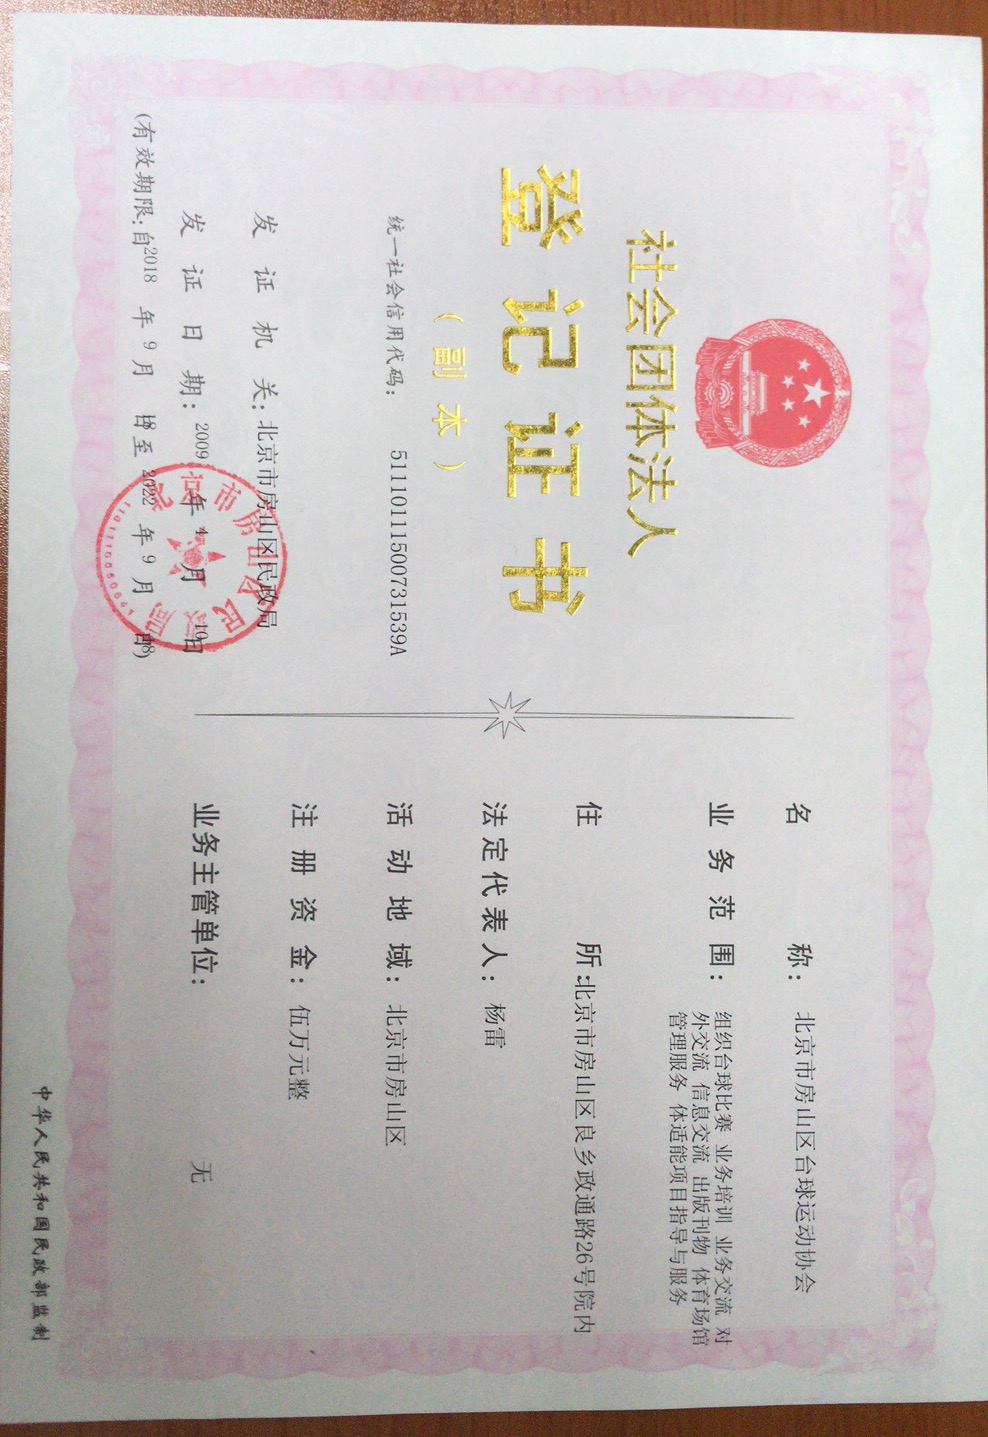 社会团体法人
登记证书
（副本）
统一社会信用代码： 51110111500731539A
发证机关：北京市房山区民政局
发证日期：2009年4月10日
(有效期限：自2018年9月18日至2022年9月18日)
名称：北京市房山区台球运动协会
业务范围：组织台球比赛 业务培训 业务交流 对
外交流 信息交流 出版刊物 体育场馆
管理服务 体适能项目指导与服务
住所：北京市房山区良乡政通路26号院内
法定代表人：杨雷
活动地域：北京市房山区
注册资金：伍万元整
业务主管单位：无
中华人民共和国民政部监制
北京市房山区民政局